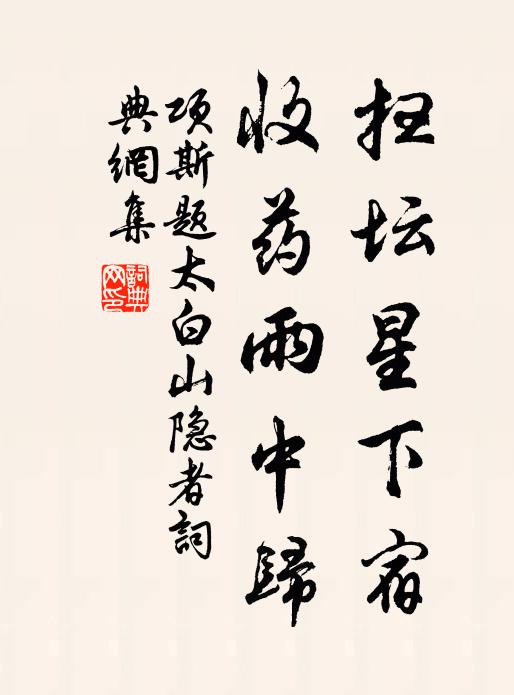 扫坛星下宿
收药雨中歸
项斯题太白山隐者詞
典網集
詞典
网印